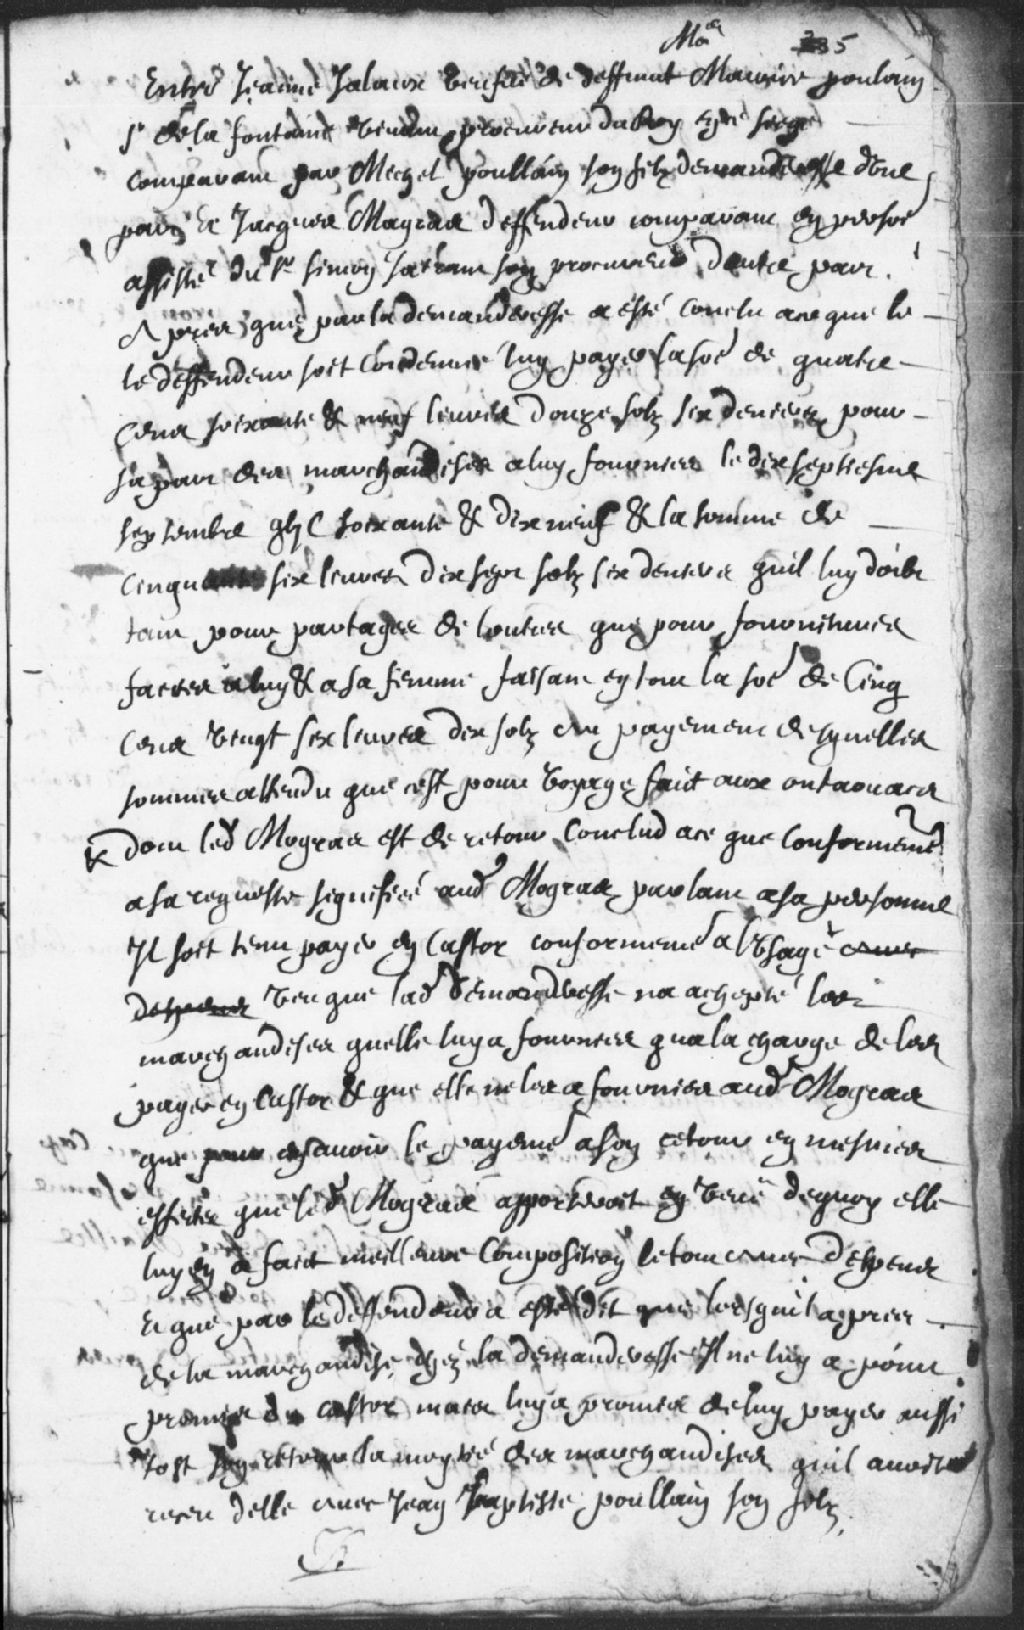 Me 235
Entre Jeanne Jalaux veufve de deffunt Maurice poulain
Sr de la fontaine vivant procureur du Roy en ce siege
comparant par Michel poullain son filz demanderesse d'une
part Et Jacques Magras deffendeur comparant en persoe
assisté du Sr simon son procureur d'autre part.
Apres que par la demanderesse a esté conclu ace que le
le deffendeur soit Condemné luy payer la soe de quatre
Cens soixante & neuf livres douze solz six deniers pour
sa part des marchandises a luy fournies le dixseptiesme
septembre gbjC soixante & dix neuf & la somme de
Cinquante six livres dix sept solz six deniers quil luy doibt
tant pour partages de que pour fournitures
faictes a luy & a sa femme faisant en tout la soe de Cinq
Cens vingt six livres dix solz au payement desquelles
sommes attendu que cest pour voyage fait aux outaouacs
dont led Mogras est de retour Conclud ace que Conformemt
a sa requeste signifiée aud Mogras parlant a sa personne
Il soit tenu payer en Castor conformemt a l'usage avec
despens veu que lad demanderesse na achepté les
marchandises quelle luy a fournies qua la charge de les
payer en Castor & que elle ne les a fournies aud Mograd
que pour en avoir le payemt a son retour en mesmes
effects que led Mogras apporteroit en veue dequoy elle
luy en a fait meilleure Composition le tout avec despens
Et que par le deffendeur a esté dit que lorsquil a pris
de la marchandise chez la demanderesse Il ne luy a point
promis du castor mais luy a promis de luy payer aussi
tost son retour la moytié des marchandises quil avoit
receu delle avec Jean Baptiste poullain son filz.